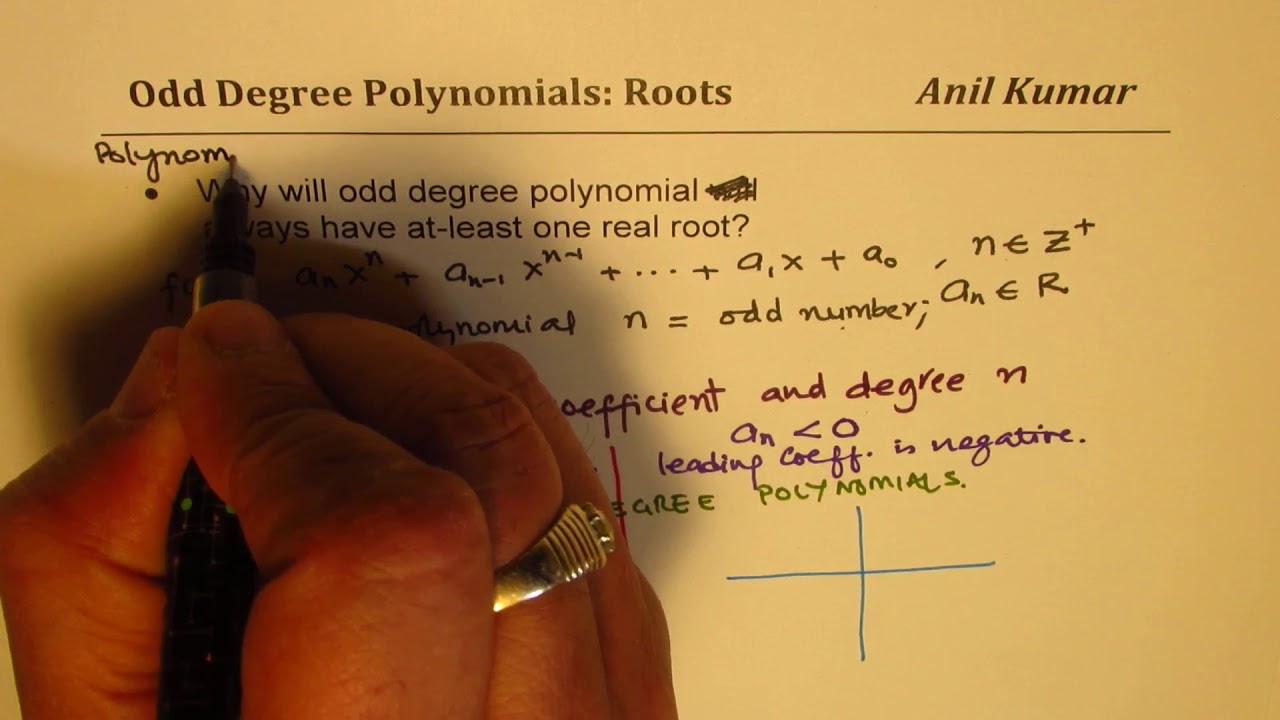 Odd Degree Polynomials: Roots Anil Kumar
Polynom
• will odd degree polynomial
have at-least one real root?
aₙxⁿ + aₙ₋₁ xⁿ⁻¹ + ... + a₁x + a₀ , n ∈ Z⁺
n = odd number; aₙ ∈ R
and degree n
aₙ < 0
leading coeff. is negative.
POLYNOMIALS.